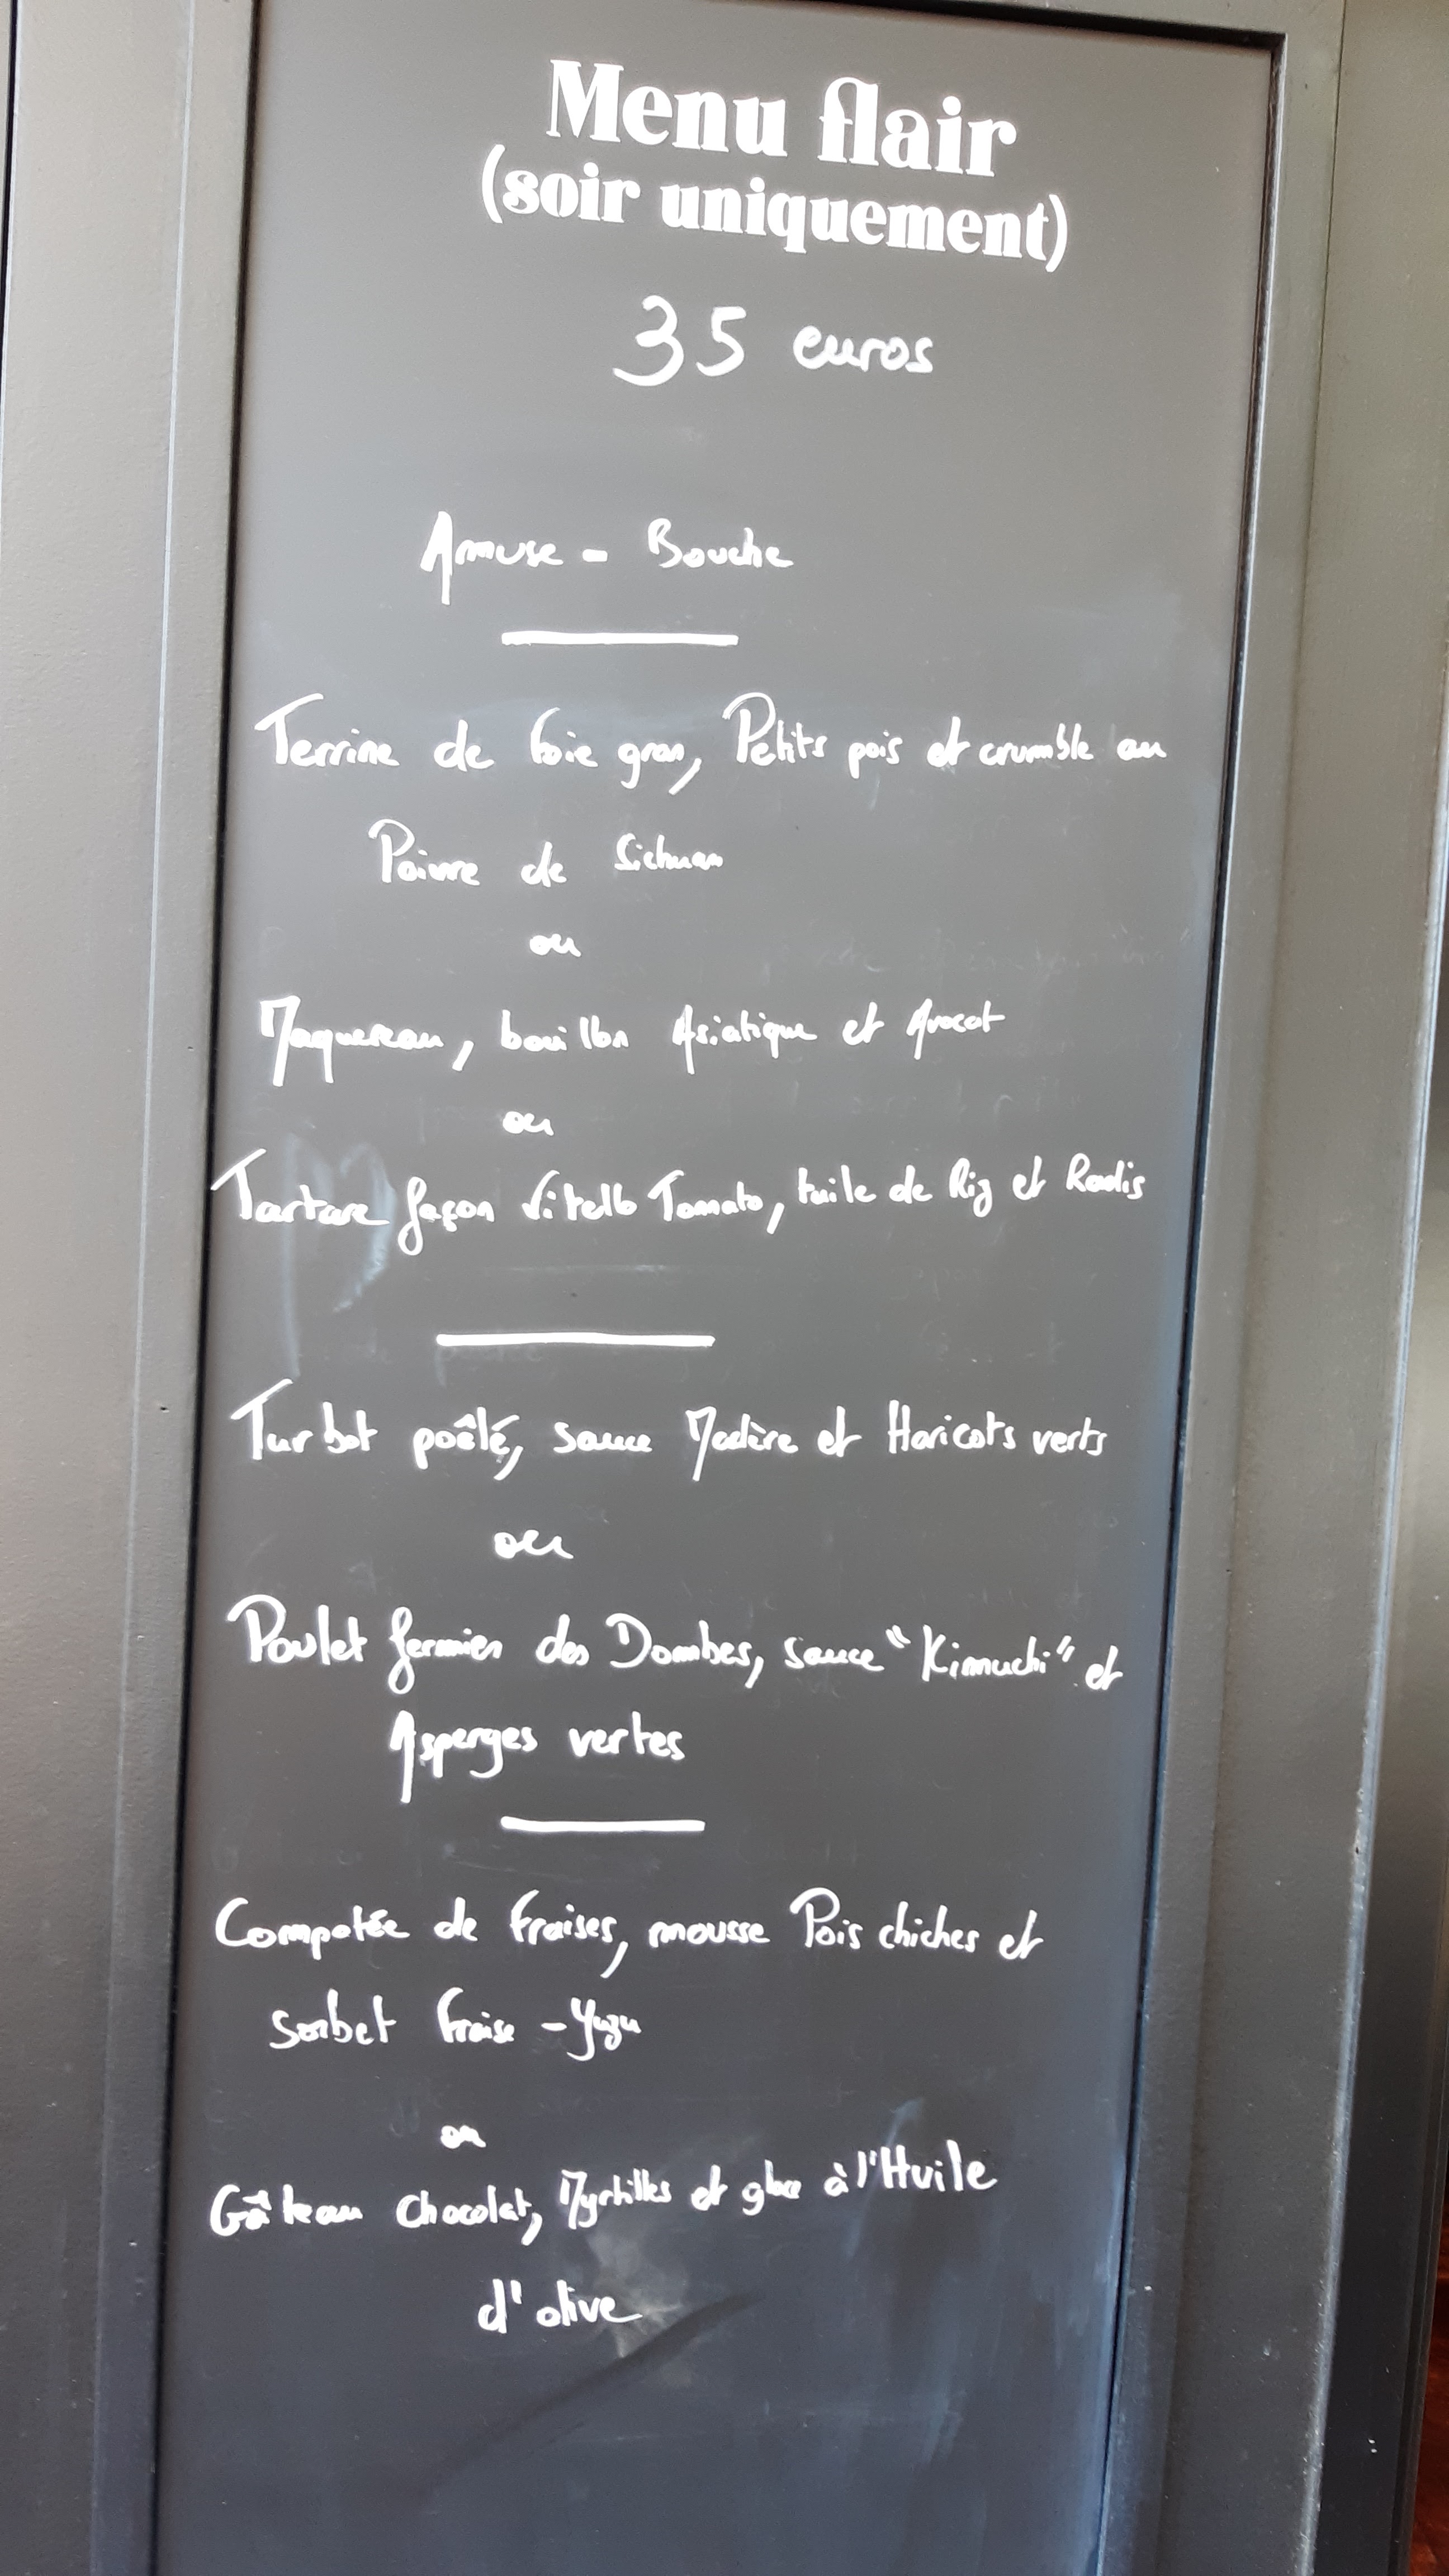 Menu flair
(soir uniquement)
35 euros
Amuse - Bouche
Terrine de foie gras, Petits pois et crumble au
Poivre de Sichuan
ou
Maquereau, bouillon Asiatique et Avocat
ou
Tartare façon Vitello Tomato, tuile de Riz et Radis
Turbot poêlé, sauce Madère et Haricots verts
ou
Poulet fermier des Dombes, sauce "Kimuchi" et
Asperges vertes
Compotée de fraises, mousse Pois chiches et
sorbet fraise - Yuzu
ou
Gâteau Chocolat, Myrtilles et glace à l'Huile
d'olive